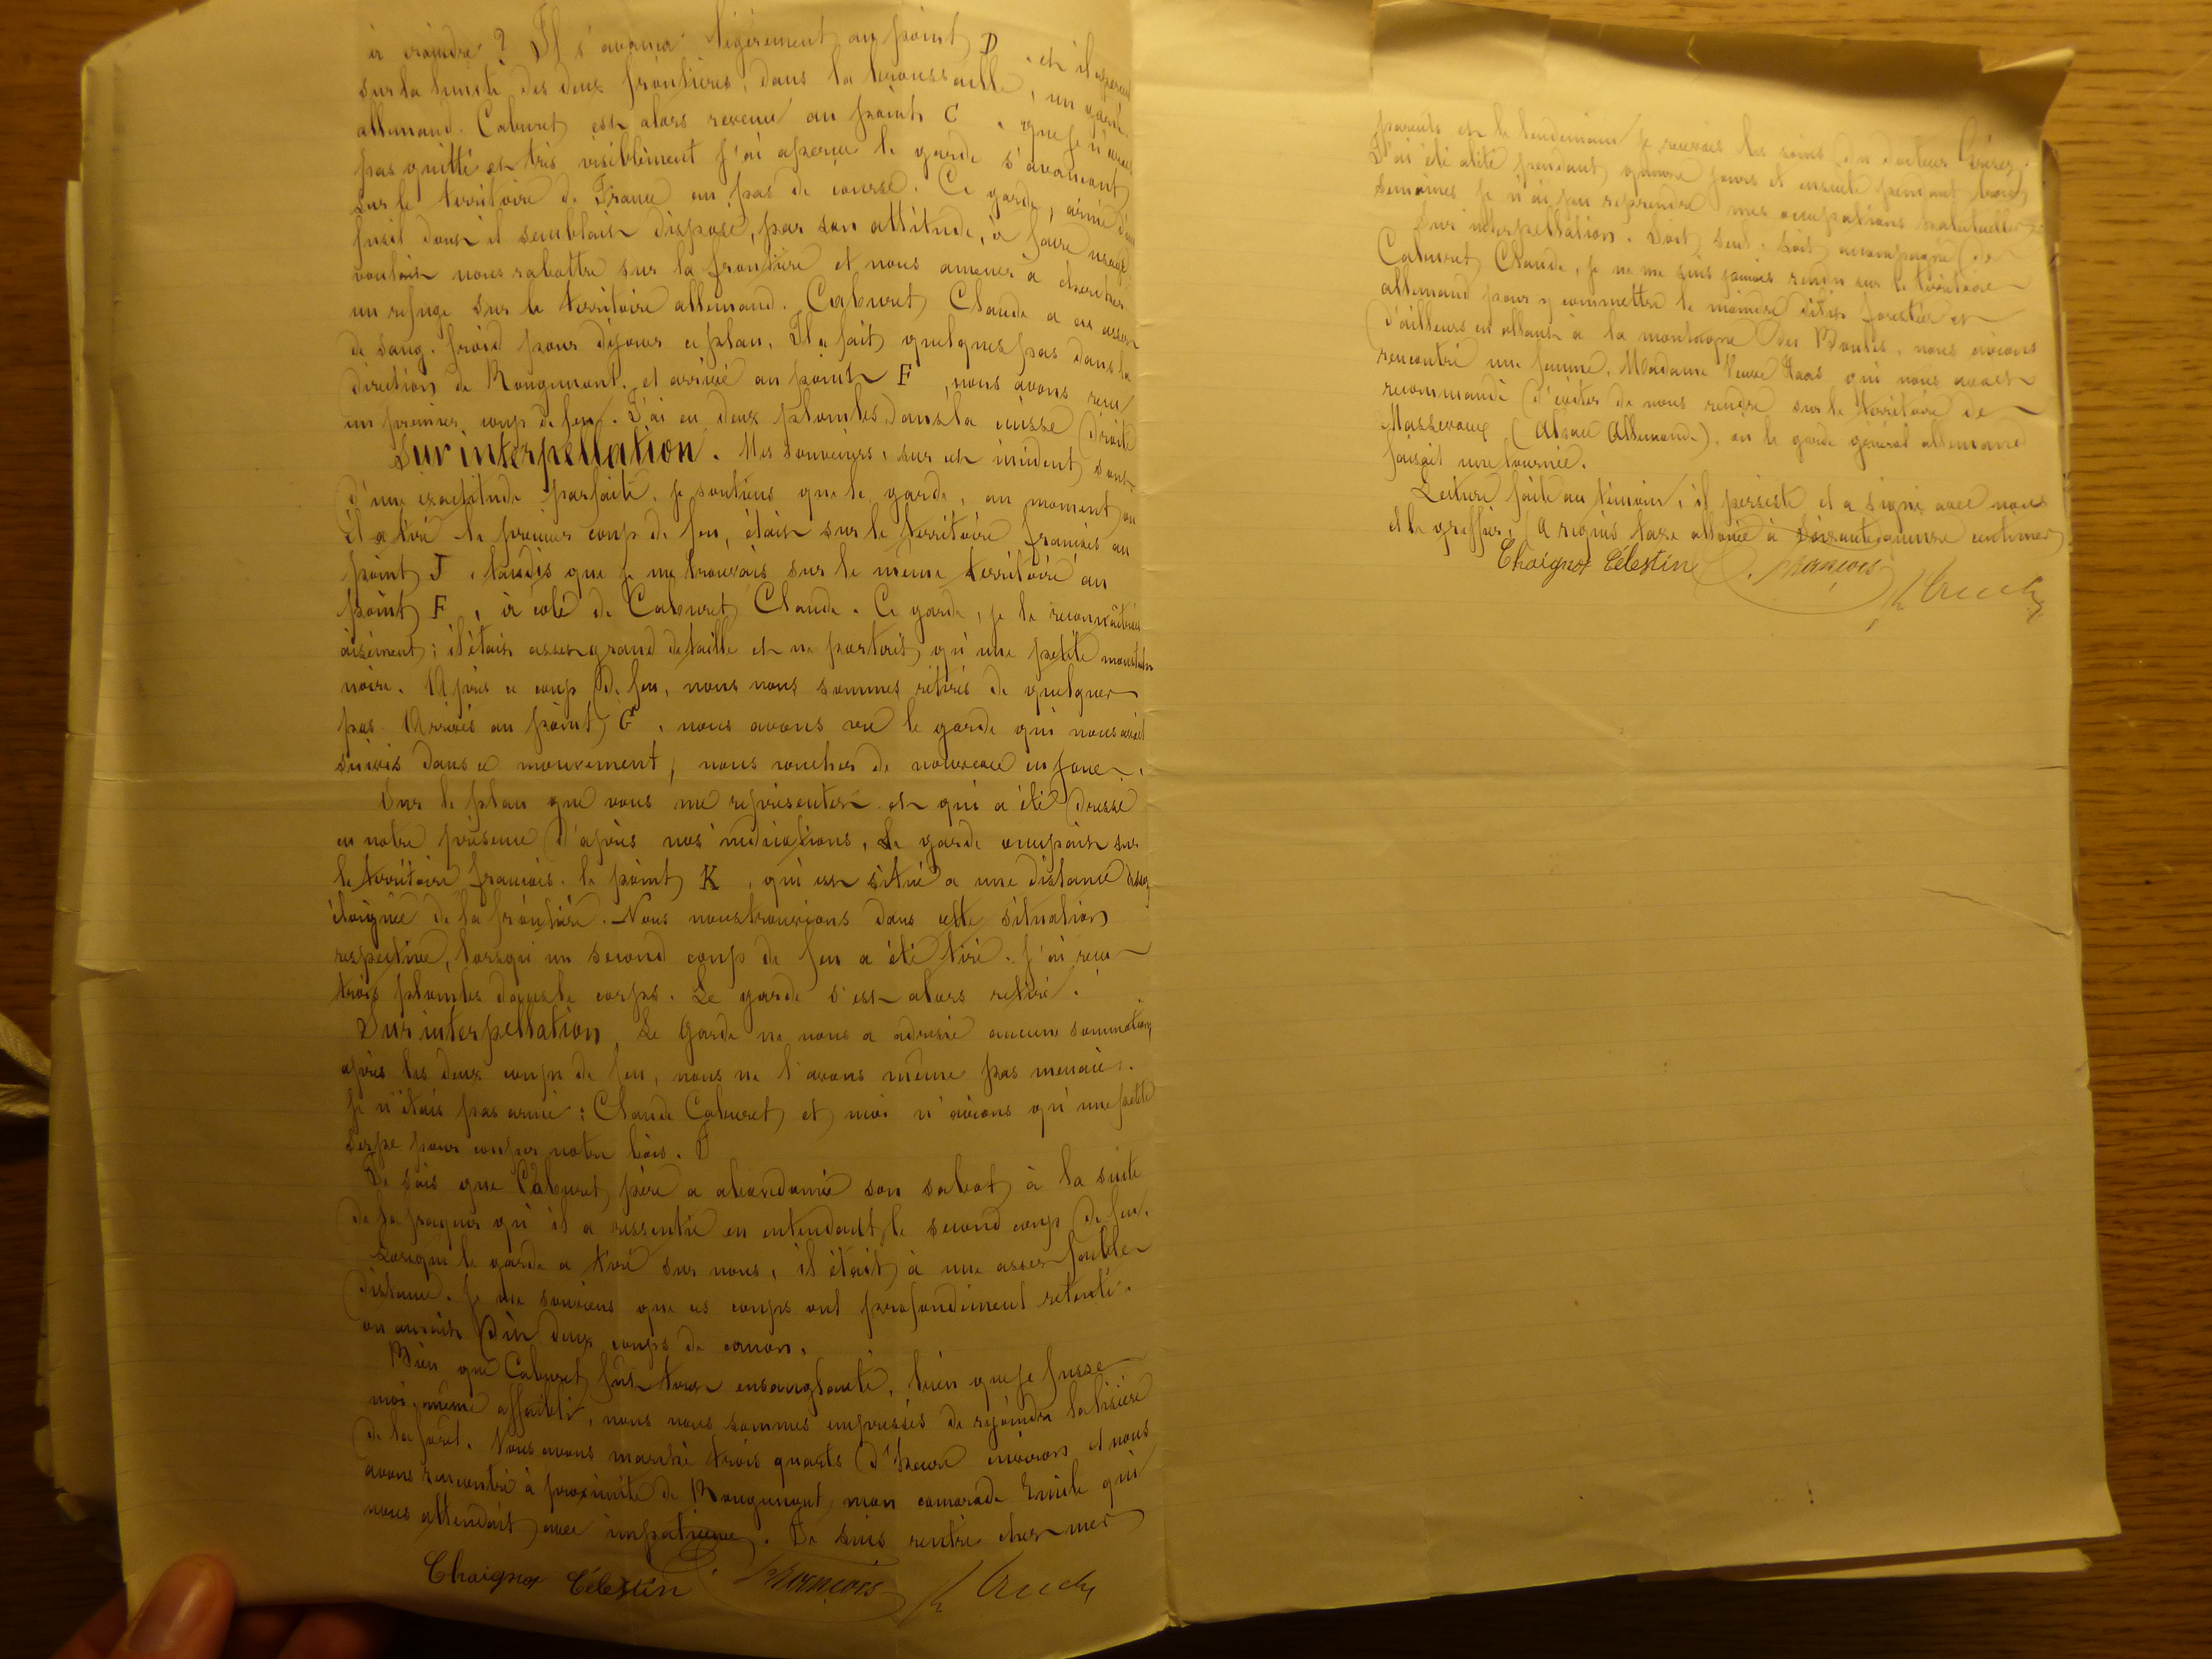 à craindre ? Il s'avança légèrement au point D, et il aperçut
sur la limite des deux frontières, dans la broussaille, un garde
allemand. Caburet est alors revenu au point C, que je n'avais
pas quitté et très visiblement j'ai aperçu le garde s'avancant
sur le territoire de France au pas de course. Ce garde, armé d'un
fusil dont il semblait disposé, par son attitude, à faire usage
voulait nous rabattre sur la frontière et nous amener à chercher
un refuge sur le territoire allemand. Caburet Claude a eu assez
de sang-froid pour déjouer ce plan. Il a fait quelques pas dans la
direction de Rougemont, et arrivé au point F, nous avons reçu
un premier coup de feu. J'ai eu deux plombs dans la cuisse droite
Sur interpellation. Mes souvenirs, sur cet incident, sont
d'une exactitude parfaite. Je soutiens que le garde, au moment où
il a tiré le premier coup de feu, était sur le territoire français au
point J, tandis que je me trouvais sur le même territoire au
point F, à côté de Caburet Claude. Ce garde, je le reconnaîtrais
aisément; il était assez grand de taille et ne portait qu'une petite moustache
noire. Après ce coup de feu, nous nous sommes retirés de quelques
pas. Arrivés au point G, nous avons vu le garde qui nous avait
suivis dans ce mouvement, nous coucher de nouveau en joue.
Sur le plan que vous me représentez et qui a été dressé
en notre présence d'après nos indications, le garde occupait sur
le territoire français le point K, qui est situé à une distance assez
éloignée de la frontière. Nous nous trouvions dans cette situation
respective, lorsqu'un second coup de feu a été tiré. J'ai reçu
trois plombs dans le corps. Le garde s'est alors retiré.
Sur interpellation. Le garde ne nous a adressé aucune sommation
après les deux coups de feu, nous ne l'avons même pas menacé.
Je n'étais pas armé : Claude Caburet et moi n'avions qu'une petite
serpe pour couper notre bois.
Je sais que Caburet père a abandonné son sabot à la suite
de la frayeur qu'il a ressentie en entendant le second coup de feu.
Lorsque le garde a tiré sur nous, il était à une assez faible
distance. Je me souviens que ces coups ont profondément retenti.
on aurait dit deux coups de canon.
Bien que Caburet fut tout ensanglanté, bien que je fusse
moi-même affaibli, nous nous sommes empressés de rejoindre la lisière
de la forêt. Nous avons marché trois quarts d'heure environ et nous
avons rencontré à proximité de Rougemont mon camarade Emile qui
nous attendait avec impatience. Je suis rentré chez mes
Chaignot Célestin François
parents et le lendemain je recevais les soins du docteur
J'ai été alité pendant quinze jours et ensuite pendant trois
semaines je n'ai pu reprendre mes occupations habituelles
Sur interpellation. Soit seul, soit accompagné de
Caburet Claude, je ne me suis jamais rendu sur le territoire
allemand pour y commettre le moindre délit forestier et
d'ailleurs en allant à la montagne des Boules, nous avions
rencontré une femme, Madame Veuve Haas qui nous avait
recommandé d'éviter de nous rendre sur le territoire de
Massevaux (Alsace Allemande), où le garde général allemand
faisait une tournée.
Lecture faite au témoin, il persiste et a signé avec nous
et le greffier, a requis taxe allouée à soixante quinze centimes
Chaignot Célestin François